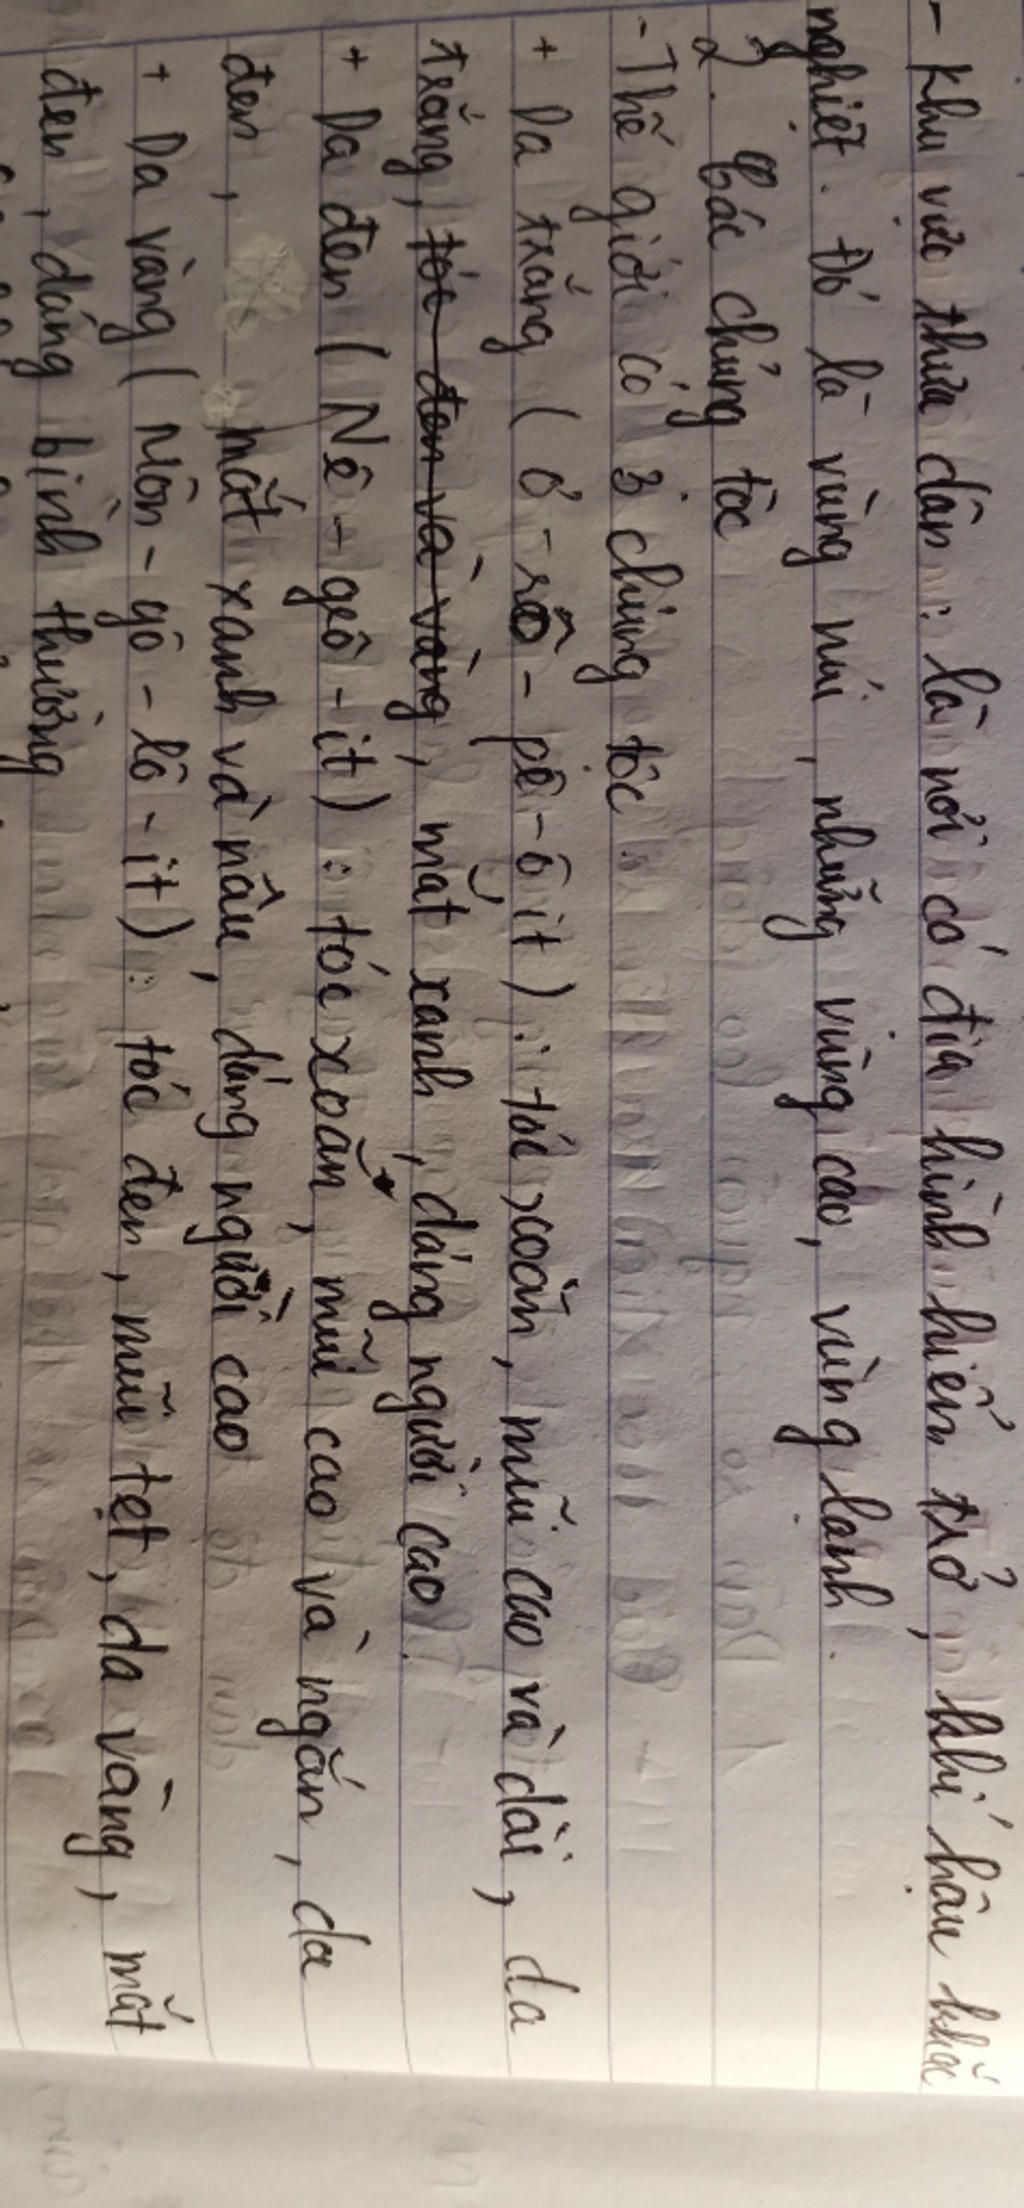 - Khu vực thưa dân : là nơi có địa hình hiểm trở, khí hậu khắc
nghiệt. Đó là vùng núi, những vùng cao, vùng lạnh.
2. Các chủng tộc
- Thế giới có 3 chủng tộc
+ Da trắng ( Ơ-rô-pê-ô it ) : tóc xoăn, mũi cao và dài, da
trắng, tóc đen và vàng, mắt xanh, dáng người cao.
+ Da đen ( Nê-grô-it ) : tóc xoăn, mũi cao và ngắn, da
đen, mắt xanh và nâu, dáng người cao
+ Da vàng ( Môn-gô-lô-it ) : tóc đen, mũi tẹt, da vàng, mắt
đen, dáng bình thường